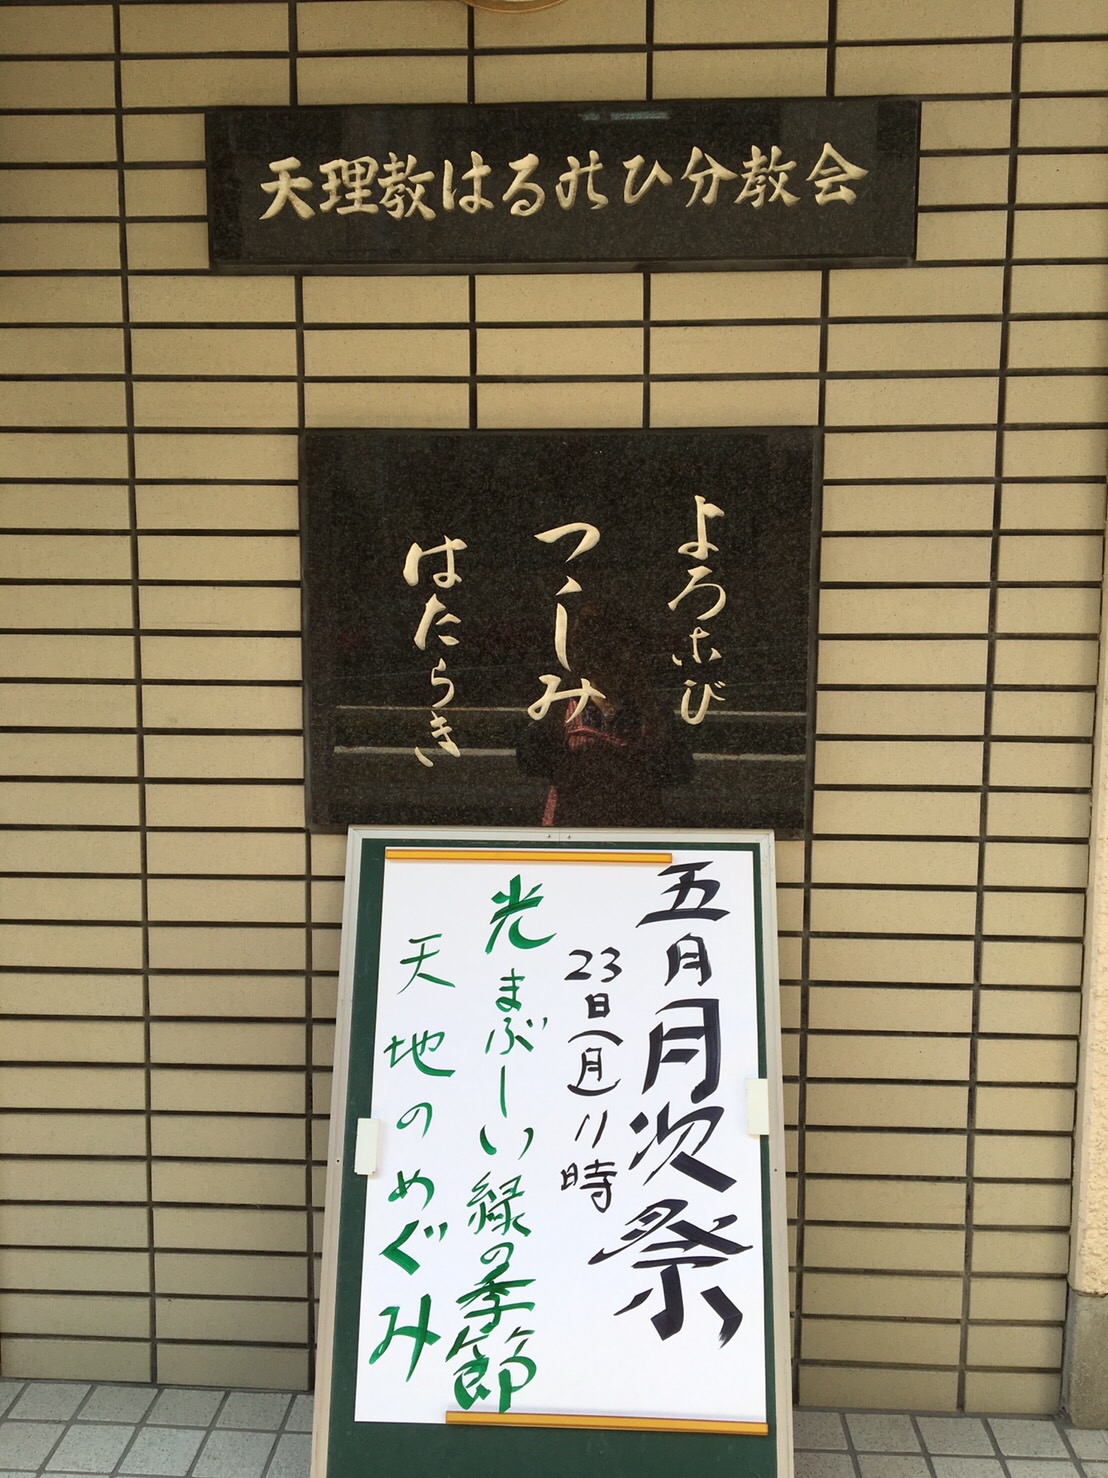 天理教はるのひ分教会
よろこび
つゝしみ
はたらき
五月月次祭
23日(月)11時
光まぶしい緑の季節
天地のめぐみ